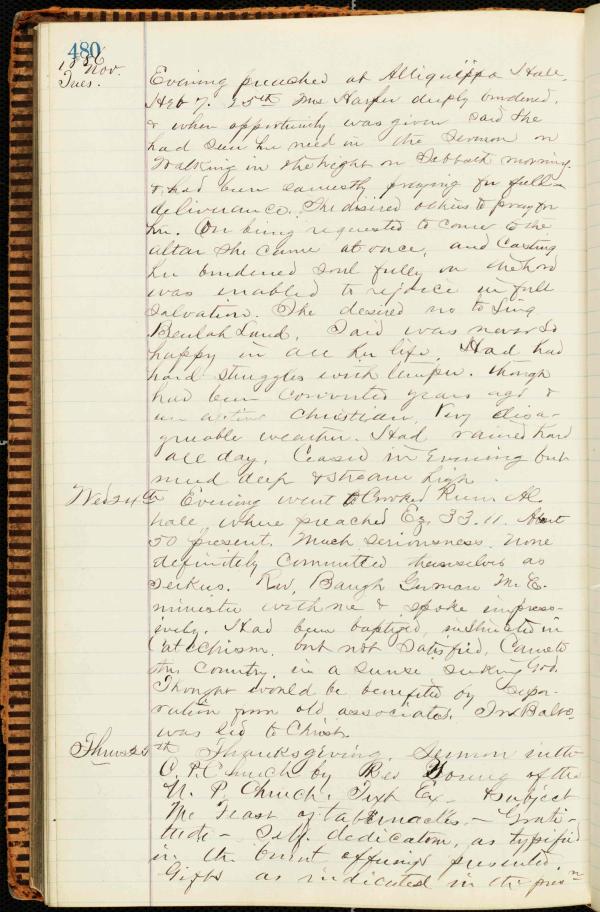 480
1886
Nov.
Tues. Evening preached at Alliquippa Hall.
Heb 7. 25th Mrs Harper deeply burdened,
& when opportunity was given said she
had seen her need in the Sermon on
Walking in the light on Sabbath morning.
& had been earnestly praying for full
deliverance. She desired others to pray for
her. On being requested to come to the
altar she came at once, and Casting
her burdened soul fully on the Lord
was enabled to rejoice in full
Salvation. She desired us to sing
Beulah Land, Said was never so
happy in all her life. Had had
hard struggles with temper. though
had been converted years ago &
an active Christian. Very disa-
greeable weather. Had rained hard
all day. Ceased in Evening but
mud deep & stream high.
Wed 24th Evening went to Crooked Run
hall, where preached Ez. 33.11. About
50 present. Much seriousness. None
definitely committed themselves as
Seekers. Rev. Baugh German M. E.
minister with me & spoke impress-
ively. Had been baptized, instructed in
Catechism. but not satisfied, Came to
this Country, in a sense seeking God.
Thought would be benefited by sepa-
ration from old associates. In Balto.
was led to Christ.
Thurs 25th Thanksgiving. Sermon in the
C. P. Church by Rev Young of the
U. P. Church. Text Ex- Subject
The Feast of tabernacles. - Grati-
tude - Self dedication, as typified
in the burnt offerings presented.
Gifts as indicated in the